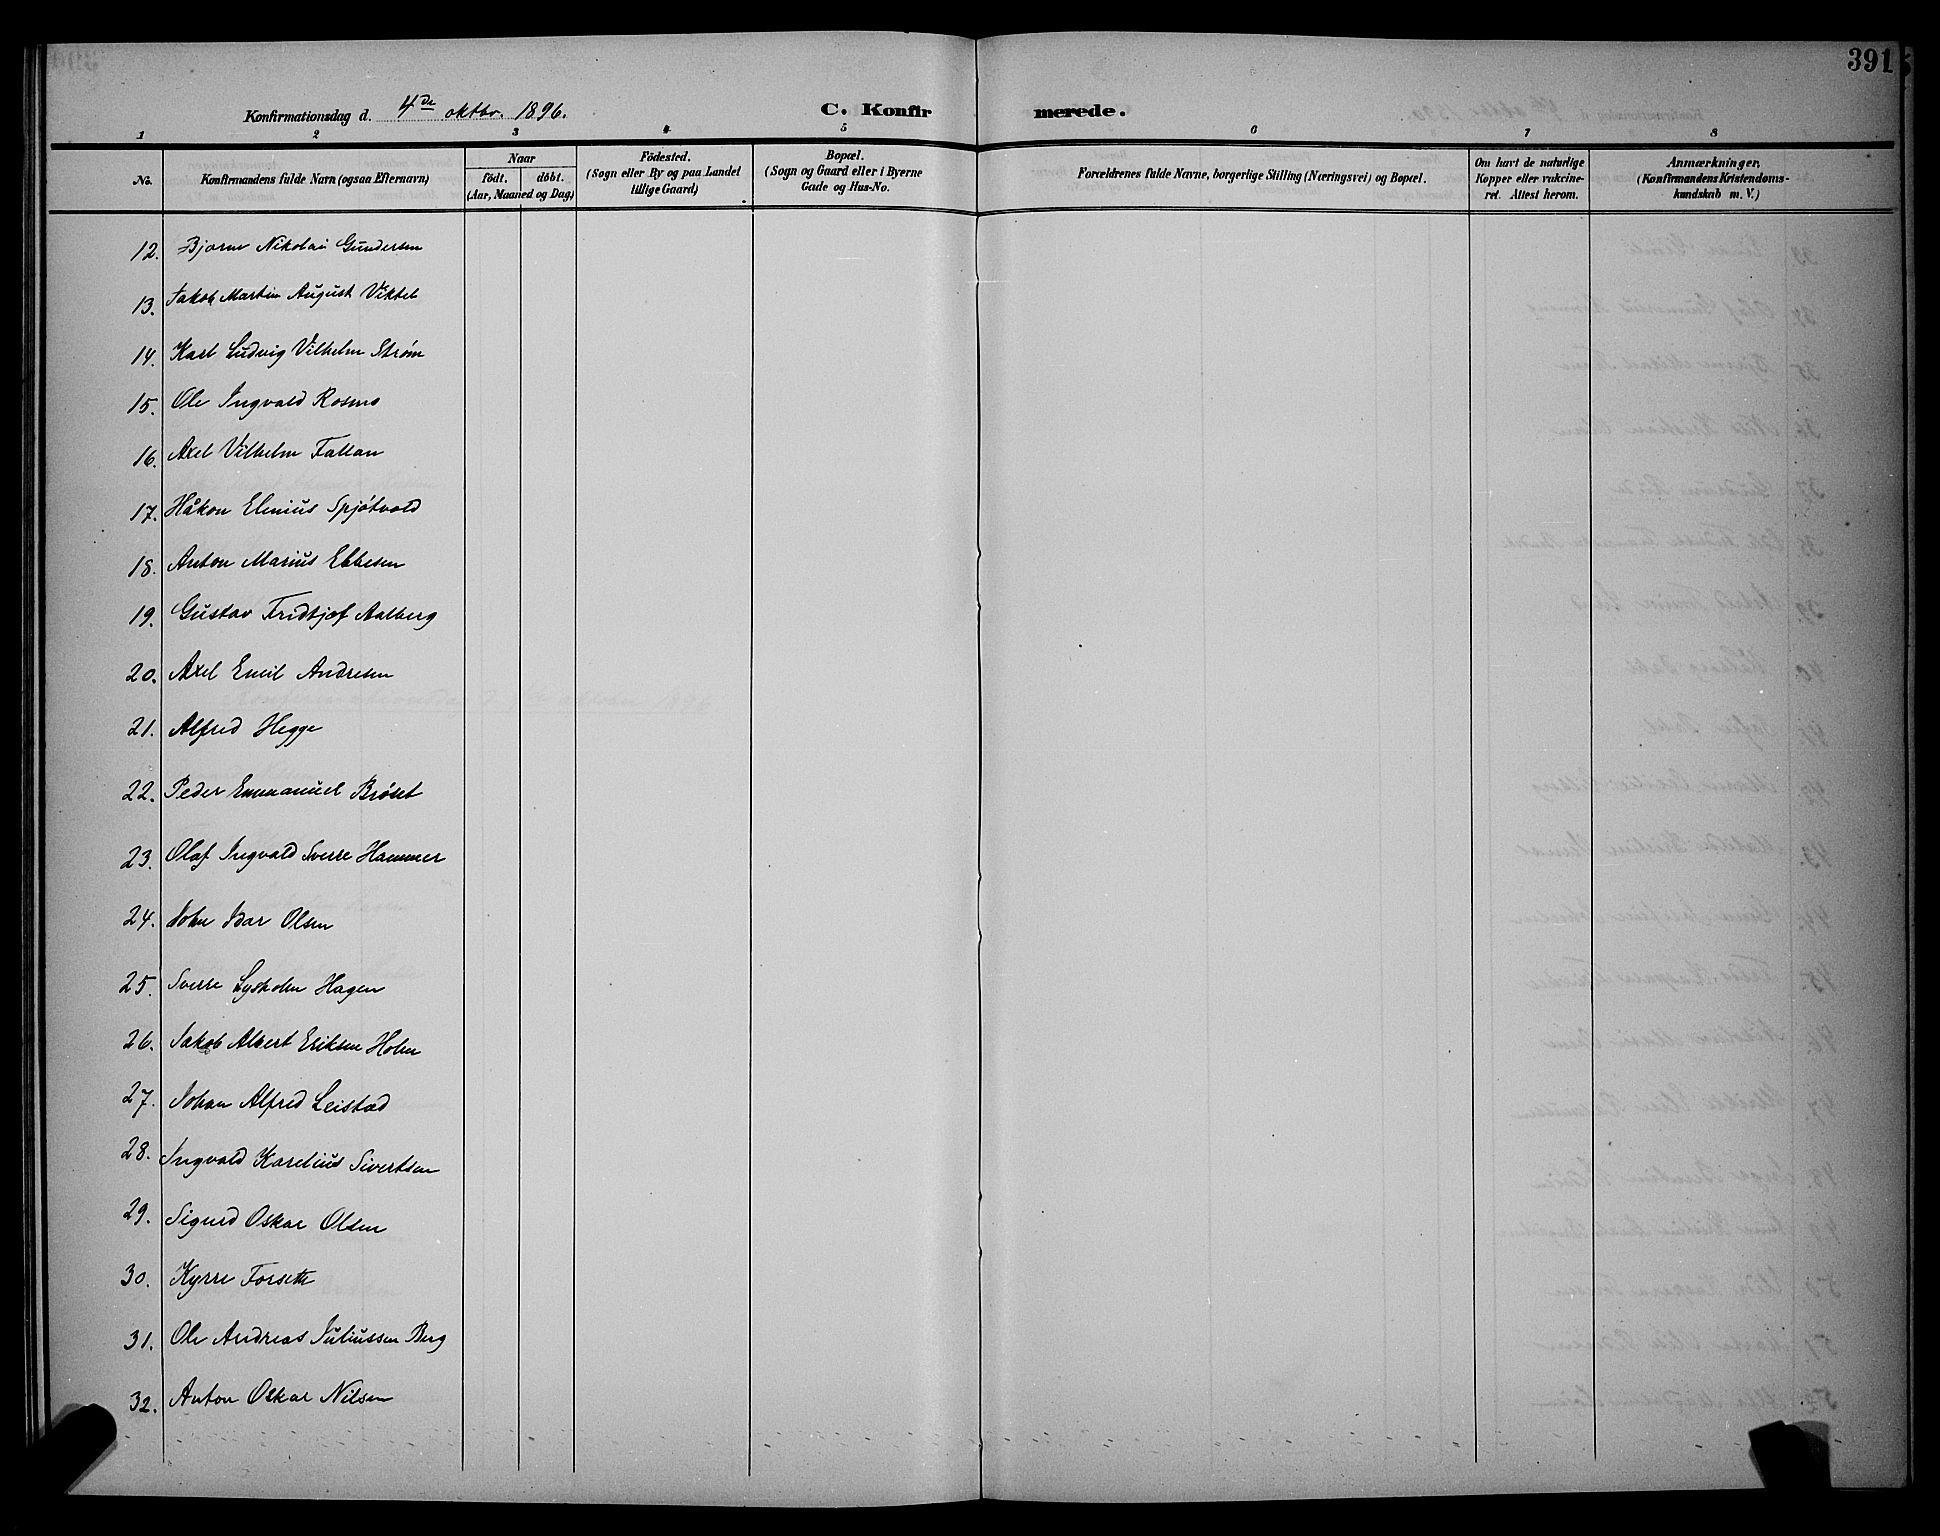 391
Konfirmationsdag d. 4de oktbr. 1896.
C. Konfirmerede.
1 2 3 4 5 6 7 8
No.
Konfirmandens fulde Navn (ogsaa Efternavn)
Naar
født. døbt.
(Aar, Maaned og Dag)
Fødested.
(Sogn eller By og paa Landet
tillige Gaard)
Bopæl.
(Sogn og Gaard eller i Byerne
Gade og Hus-No.
Forældrenes fulde Navne, borgerlige Stilling (Næringsvei) og Bopæl.
Om havt de naturlige
Kopper eller vakcine-
ret. Attest herom.
Anmærkninger,
(Konfirmandens Kristendoms-
kundskab m. V.)
12. Bjarne Nikolai Gundersen
13. Jakob Martin August Viktel
14. Karl Ludvig Vilhelm Strøm
15. Ole Ingvald Rosmo
16. Axel Vilhelm Fallan
17. Håkon Elenius Spjøtvold
18. Anton Marius Ebbesen
19. Gustav Fridtjof Aalberg
20. Axel Emil Andresen
21. Alfred Hegge
22. Peder Emmanuel Brøset
23. Olaf Ingvald Sverre Hammer
24. John Idar Olsen
25. Sverre Lysholm Hagen
26. Jakob Albert Eriksen Holm
27. Johan Alfred Leistad
28. Ingvald Karelius Sivertsen
29. Sigurd Oskar Olsen
30. Kyrre Forseth
31. Ole Andreas Juliussen Berg
32. Anton Oskar Nilsen